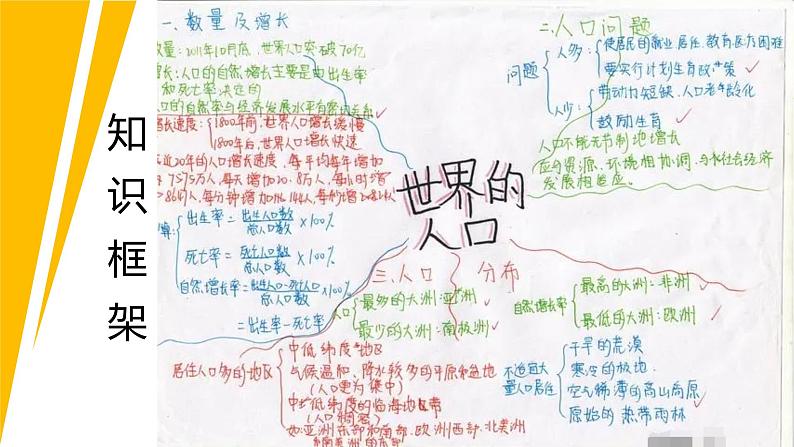 知识框架
一、数量及增长
数量：2011年10月底，世界人口突破70亿
增长：人口的自然增长主要是由出生率
和死亡率决定的
人口的自然增长率与经济发展水平有密切关系
增长速度：1800年前，世界人口增长缓慢
1800年后，世界人口增长快速
近20年的人口增长速度，每年平均增加
7575万人，每天增加20.8万人，每小时增
8647人，每分钟增加144人，每秒增
出生率＝出生人口数/总人口数×100%
死亡率＝死亡人口数/总人口数×100%
自然增长率＝出生人口－死亡人口/总人口数×100%
＝出生率－死亡率
二、人口问题
问题
人多：使居民的就业居住、教育医疗困难
要实行计划生育政策
人少：劳动力短缺、人口老龄化
鼓励生育
人口不能无节制地增长
应与资源、环境相协调，与社会经济
发展相适应。
世界的
人口
三、人口分布
人口
最多的大洲：亚洲
最少的大洲：南极洲
自然增长率
最高的大洲：非洲
最低的大洲：欧洲
居住人口多的地区
中低纬度地区
气候温和、降水较多的平原和盆地
（人口更为集中）
中低纬度的临海地带
（人口稠密）
如亚洲东部和南部、欧洲西部、北美洲
和南美洲的东部
不适宜大
量人口居住
干旱的荒漠
寒冷的极地
空气稀薄的高山高原
原始的热带雨林